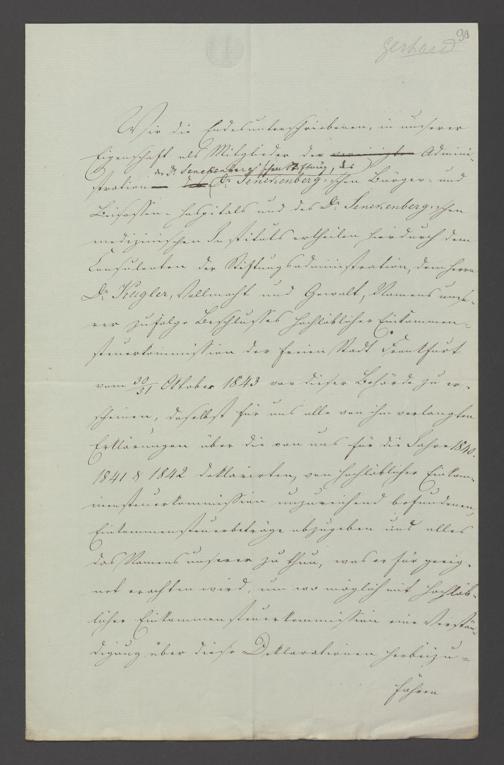 90
Gerhard
Wir die Endesunterschriebenen, in unserer
Eigenschaft als Mitglieder der Admini-
der Dr. Senckenberg'schen Stiftung, des
stration Dr. Senckenbergischen Bürger- und
Beisassen-Hospitals und des Dr. Senckenbergischen
medizinischen Instituts ertheilen hierdurch dem
Consulenten der Stiftungsadministration, dem Herrn
Dr. Kugler, Vollmacht und Gewalt, Namens unse-
rer zufolge Beschlusses hochlöblicher Einkommen-
steuerkommission der freien Stadt Frankfurt
vom 30/31 Oktober 1843 vor dieser Behörde zu er-
scheinen, daselbst für uns alle von ihm verlangten
Erklärungen über die von uns für die Jahre 1840,
1841 & 1842 deklarirten, von hochlöblicher Einkom-
mensteuerkommission unzureichend befundenen,
Einkommensteuerbeträge abzugeben und alles
das Namens unserer zu thun, was er für geeig-
net erachten wird, um wo möglich mit hochlöb-
licher Einkommensteuerkommission eine Verstän-
digung über diese Deklarationen herbeizu-
führen